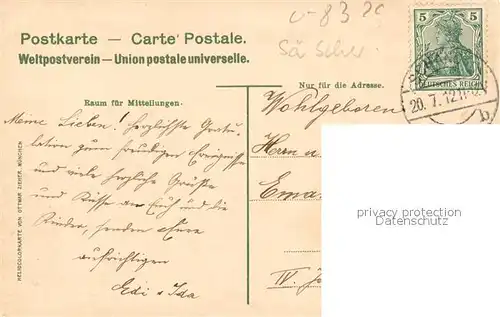 Postkarte — Carte Postale.
Weltpostverein — Union postale universelle.
5 5
DEUTSCHES REICH
20. 7. 12
Nur für die Adresse.
Raum für Mitteilungen.
Wohlgeboren
Herrn u
Meine Lieben! Herzlichste Gratu-
lation zum freudigen Ereignisse
und viele herzliche Grüße
und Küsse an Euch und die
Kinder, senden Eure
aufrichtigen
Edi u Ida
Ema
IV.
HELIOCOLORKARTE VON OTTMAR ZIEHER, MÜNCHEN
privacy protection
Datenschutz